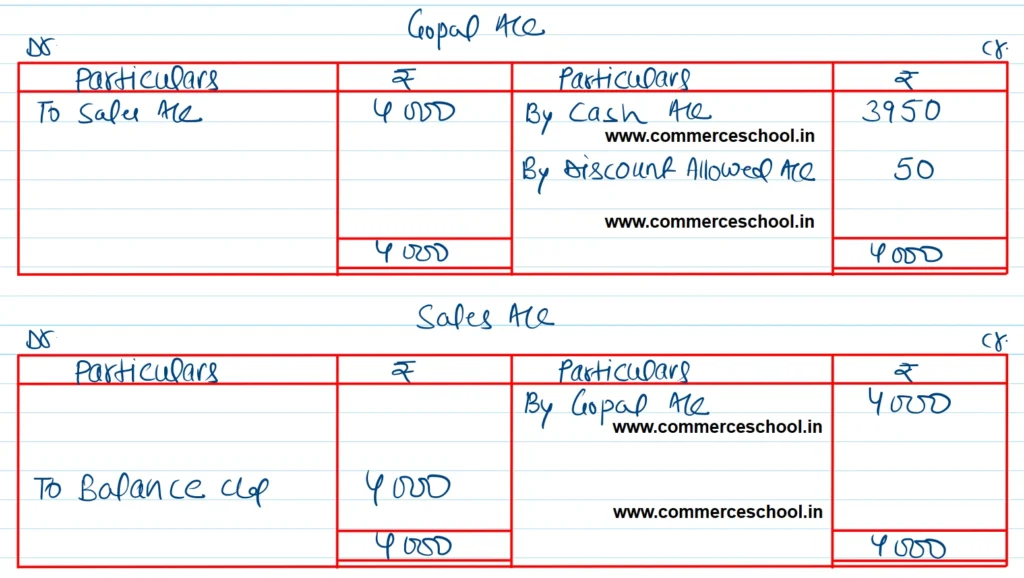 Gopal A/c
Dr. Cr.
Particulars ₹ Particulars ₹
To Sales A/c 4000 By Cash A/c 3950
www.commerceschool.in
By Discount Allowed A/c 50
www.commerceschool.in
4000 4000
Sales A/c
Dr. Cr.
Particulars ₹ Particulars ₹
By Gopal A/c 4000
www.commerceschool.in
To Balance c/d 4000
www.commerceschool.in
4000 4000